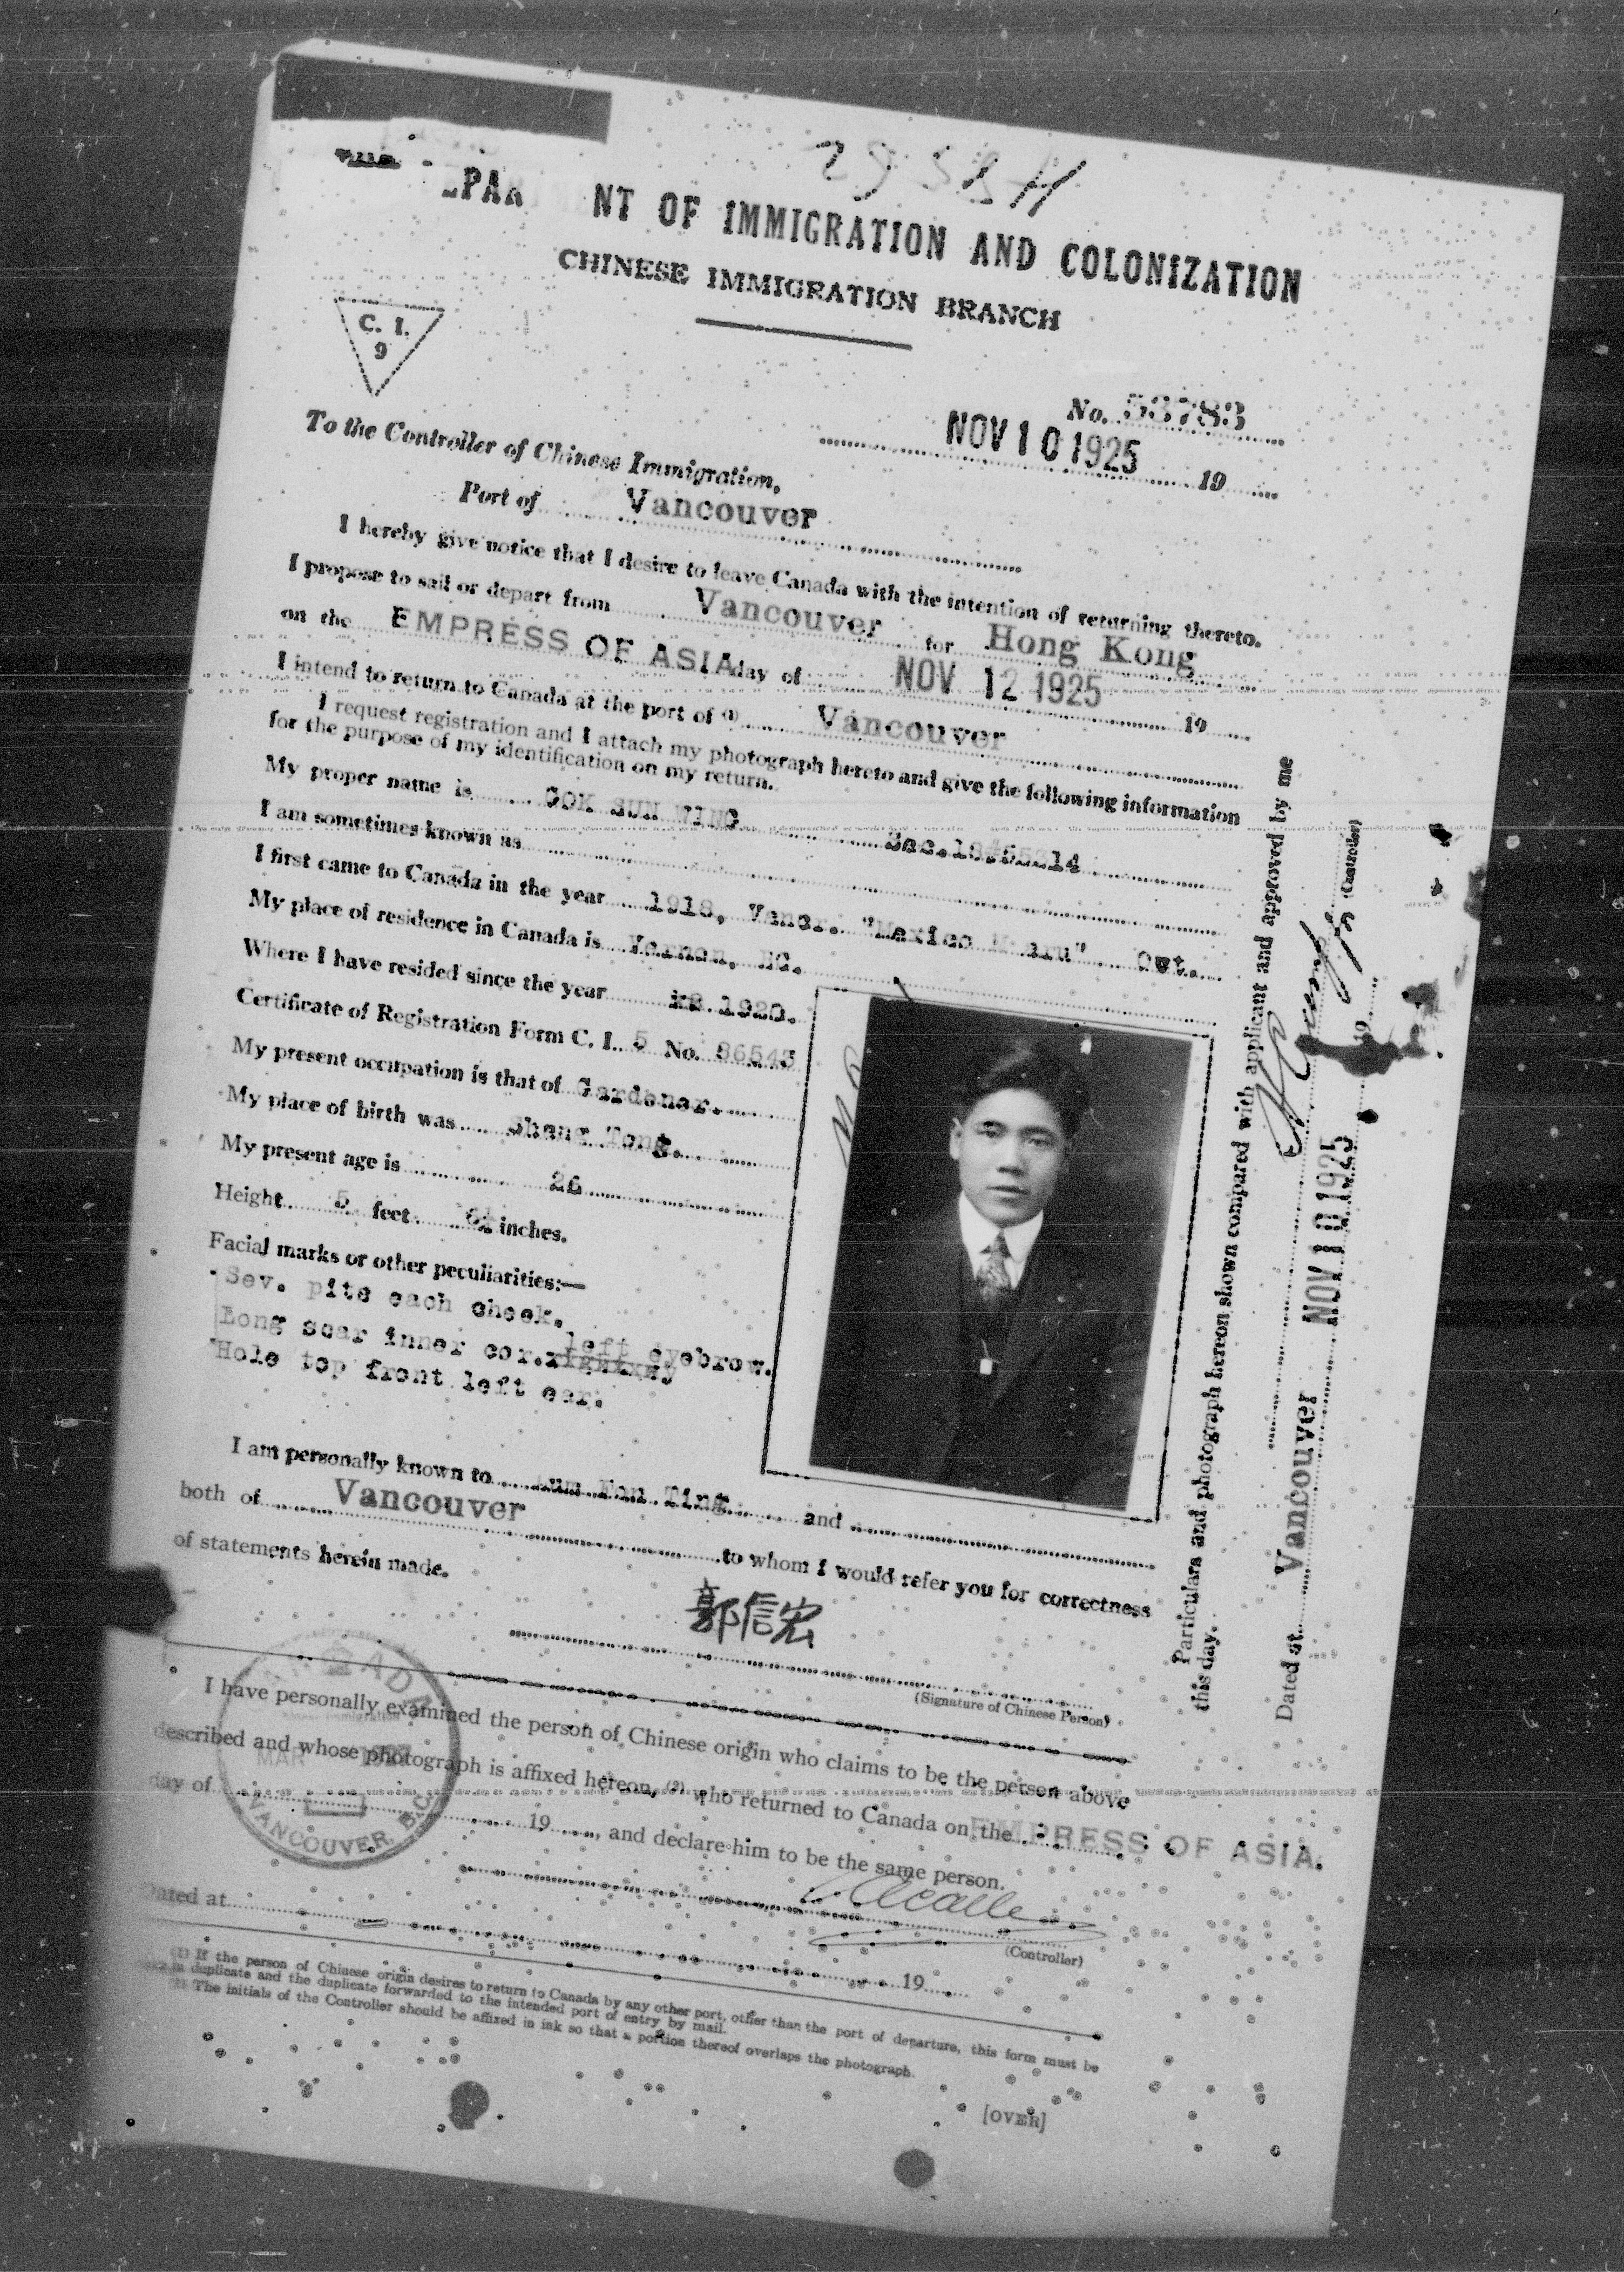 DEPARTMENT OF IMMIGRATION AND COLONIZATION
CHINESE IMMIGRATION BRANCH
C. I.
9
No. 53783
NOV 10 1925 19
To the Controller of Chinese Immigration,
Port of Vancouver
I hereby give notice that I desire to leave Canada with the intention of returning thereto.
I propose to sail or depart from Vancouver for Hong Kong
on the EMPRESS OF ASIA day of NOV 12 1925 19
I intend to return to Canada at the port of (1) Vancouver
I request registration and I attach my photograph hereto and give the following information
for the purpose of my identification on my return.
My proper name is GOK SUN WING
I am sometimes known as
I first came to Canada in the year 1918, Vancr. "Mexico Maru" Oct.
My place of residence in Canada is Vernon, BC.
Where I have resided since the year 1920.
Certificate of Registration Form C. I. 5 No. 86543
My present occupation is that of Gardener.
My place of birth was Shang Tong.
My present age is 26
Height 5 feet 6½ inches.
Facial marks or other peculiarities:—
Sev. pits each cheek.
Long scar inner cor. left eyebrow.
Hole top front left ear.
I am personally known to Lum Fon Ting and
both of Vancouver to whom I would refer you for correctness
of statements herein made.
郭信宏
(Signature of Chinese Person)
I have personally examined the person of Chinese origin who claims to be the person above
described and whose photograph is affixed hereon, (2) who returned to Canada on the EMPRESS OF ASIA.
day of 19 , and declare him to be the same person.
(Controller)
Dated at 19
(1) If the person of Chinese origin desires to return to Canada by any other port, other than the port of departure, this form must be
in duplicate and the duplicate forwarded to the intended port of entry by mail.
(2) The initials of the Controller should be affixed in ink so that a portion thereof overlaps the photograph.
[OVER]
CANADA
MAR 1927
VANCOUVER, B.C.
Particulars and photograph hereon shown compared with applicant and approved by me
this day.
(Controller)
Dated at Vancouver NOV 10 1925 19